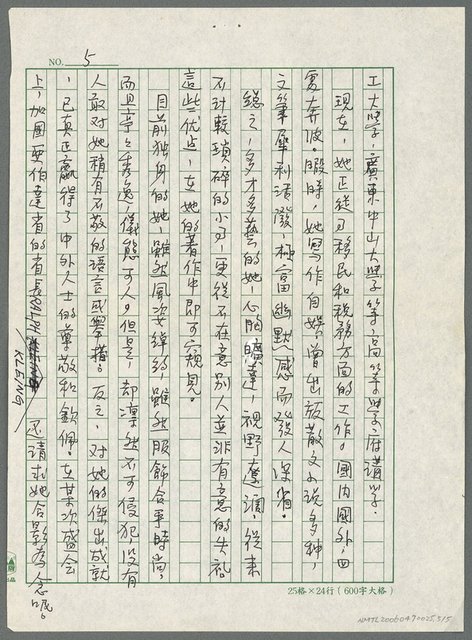 NO. 5
工大學,廣東中山大學等高等學府講學.
現在,她正從事移民和稅務方面的工作。國內國外,四
處奔波。暇時,她寫作自娛,曾出版散文小說多種,
文筆犀利活潑,極富幽默感而發人深省。
總之,多才多藝的她,心胸曠達,視野遼濶,從來
不計較瑣碎的小事,更從不在意別人並非有意的失禮
這些优点,在她的著作中即可窺見。
目前独身的她,雖然風姿綽約,雖然服飾合乎時尚,
而且亭亭秀逸,儀態可人。但是,却凜然不可侵犯,没有
人敢对她稍有不敬的語言或舉措。反之,对她的傑出成就
,已真正贏得了中外人士的尊敬和欽佩。在某次盛会
上,加國亞伯達省的省長RALPH KLEING還請求她合影為念呢。
25格×24行(600字大格)
NMTL20060470025,5/5